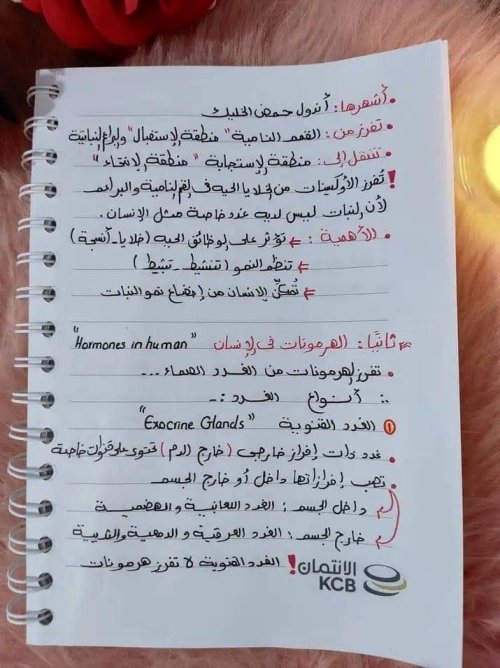 • أشهرها: أندول حمض الخليك
• تفرز من: القمم النامية "منطقة الإستقبال" والبراعم النباتية
• تنتقل إلى: منطقة الإستجابة "منطقة الإنحناء"
! تُفرز الأوكسينات من الخلايا الحيه فى القمم النامية والبراعم
لأن النبات ليس لديه غدد خاصة مثل الإنسان.
• الأهمية: ⇐ تؤثر على الوظائف الحيه (خلايا - أنسجة)
⇐ تنظم النمو (تنشيط - تثبيط)
⇐ تُمكّن الإنسان من إخضاع نمو النبات
ثانيًا: الهرمونات فى الإنسان "Hormones in human"
• تفرز الهرمونات من الغدد الصماء ...
∴ أنواع الغدد :-
① الغدد القنوية "Exocrine Glands"
• غدد ذات إفراز خارجى (خارج الدم) تحتوى على قنوات خاصة
• تصب إفرازاتها داخل أو خارج الجسم
داخل الجسم: الغدد اللعابية والهضمية
خارج الجسم: الغدد العرقية والدمعية والثديية
! الغدد القنوية لا تفرز هرمونات
الائتمان
KCB